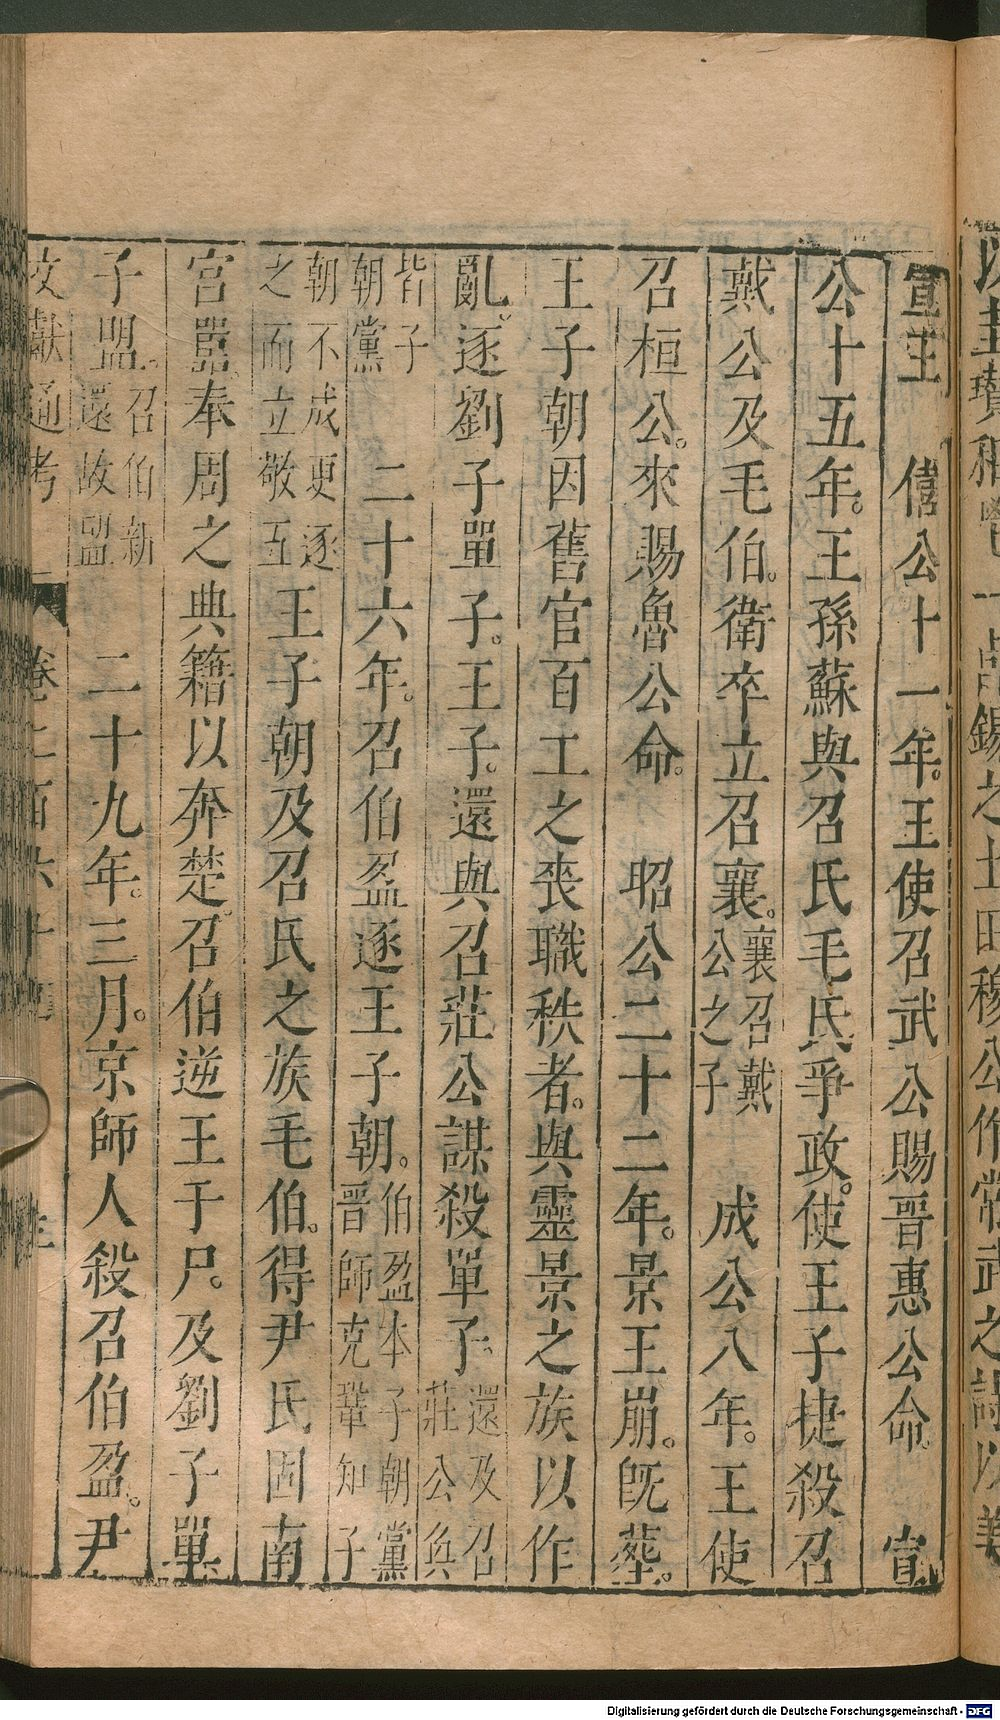 宣王　僖公十一年王使召武公賜晋惠公命　宣
公十五年王孫蘇與召氏毛氏爭政使王子捷殺召
戴公及毛伯衛卒立召襄襄召戴公之子　成公八年王使
召桓公來賜魯公命　昭公二十二年景王崩旣葬
王子朝因舊官百工之喪職秩者與靈景之族以作
亂逐劉子單子王子還與召莊公謀殺單子還及召莊公奐
皆子朝黨　二十六年召伯盈逐王子朝伯盈本子朝黨晋師克鞏知子
朝不成更逐之而立敬王王子朝及召氏之族毛伯得尹氏固南
宮嚚奉周之典籍以奔楚召伯逆王于尸及劉子單
子盟召伯新還故盟　二十九年三月京師人殺召伯盈尹
文獻通考　卷二百六十
以圭瓚秬鬯一卣錫之土田穆公作常武之詩以美
Digitalisierung gefördert durch die Deutsche Forschungsgemeinschaft - DFG